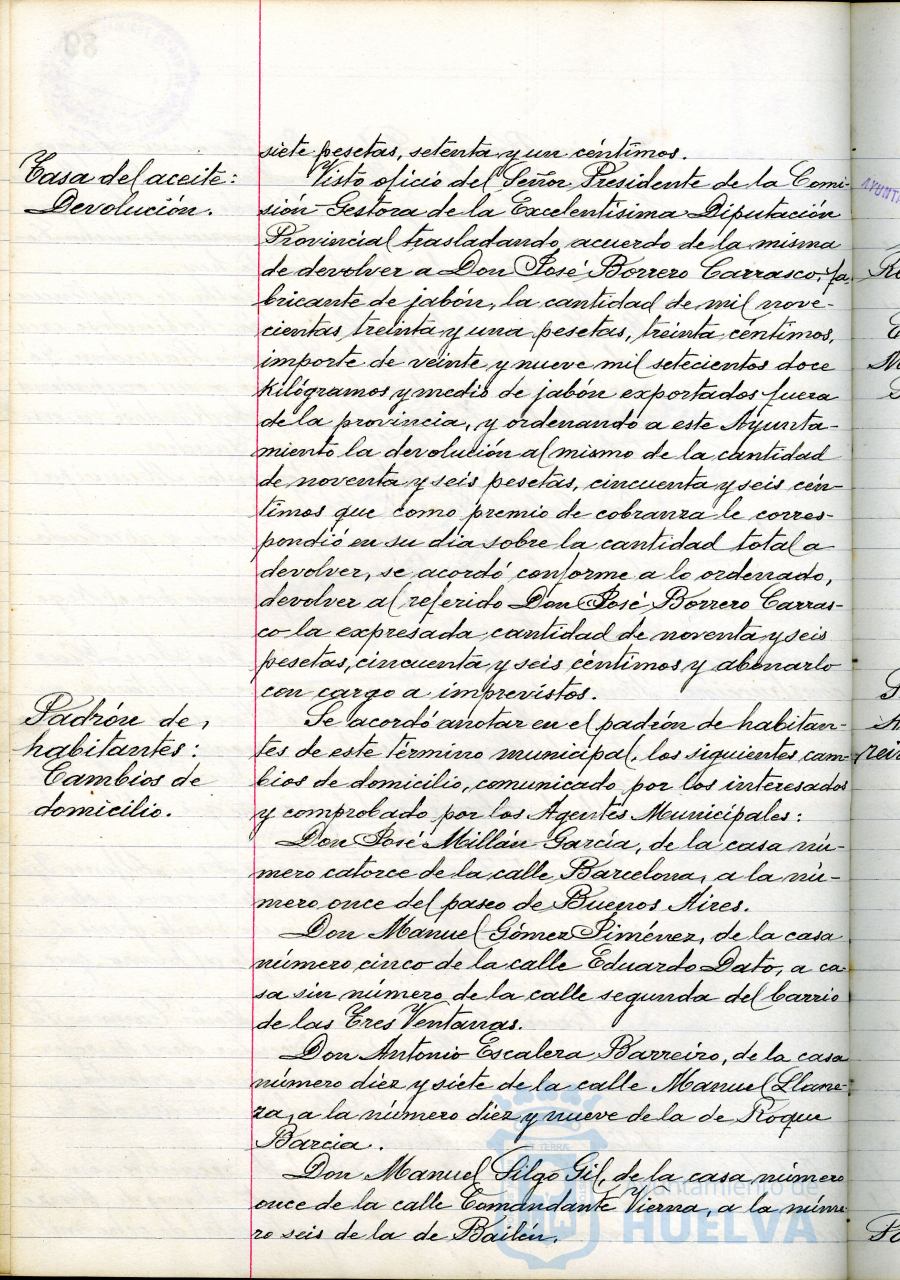 siete pesetas, setenta y un céntimos.
Tasa del aceite:
Devolución.
Visto oficio del Señor Presidente de la Comi-
sión Gestora de la Excelentísima Diputación
Provincial trasladando acuerdo de la misma
de devolver a Don José Borrero Carrasco, fa-
bricante de jabón, la cantidad de mil nove-
cientas treinta y una pesetas, treinta céntimos,
importe de veinte y nueve mil setecientos doce
kilógramos y medio de jabón exportados fuera
de la provincia, y ordenando a este Ayunta-
miento la devolución al mismo de la cantidad
de noventa y seis pesetas, cincuenta y seis cén-
timos que como premio de cobranza le corres-
pondió en su dia sobre la cantidad total a
devolver, se acordó conforme a lo ordenado,
devolver al referido Don José Borrero Carras-
co la expresada cantidad de noventa y seis
pesetas, cincuenta y seis céntimos y abonarlo
con cargo a imprevistos.
Padrón de
habitantes:
Cambios de
domicilio.
Se acordó anotar en el padrón de habitan-
tes de este término municipal, los siguientes cam-
bios de domicilio, comunicado por los interesados
y comprobado por los Agentes Municipales:
Don José Millán García, de la casa nú-
mero catorce de la calle Barcelona, a la nú-
mero once del paseo de Buenos Aires.
Don Manuel Gómez Jiménez, de la casa
número cinco de la calle Eduardo Dato, a ca-
sa sin número de la calle segunda del barrio
de las Tres Ventanas.
Don Antonio Escalera Barreiro, de la casa
número diez y siete de la calle Manuel Llane-
za, a la número diez y nueve de la de Roque
Barcia.
Don Manuel Silgo Gil, de la casa número
once de la calle Comandante Vierna, a la núme-
ro seis de la de Bailén.
Ayuntamiento de
HUELVA